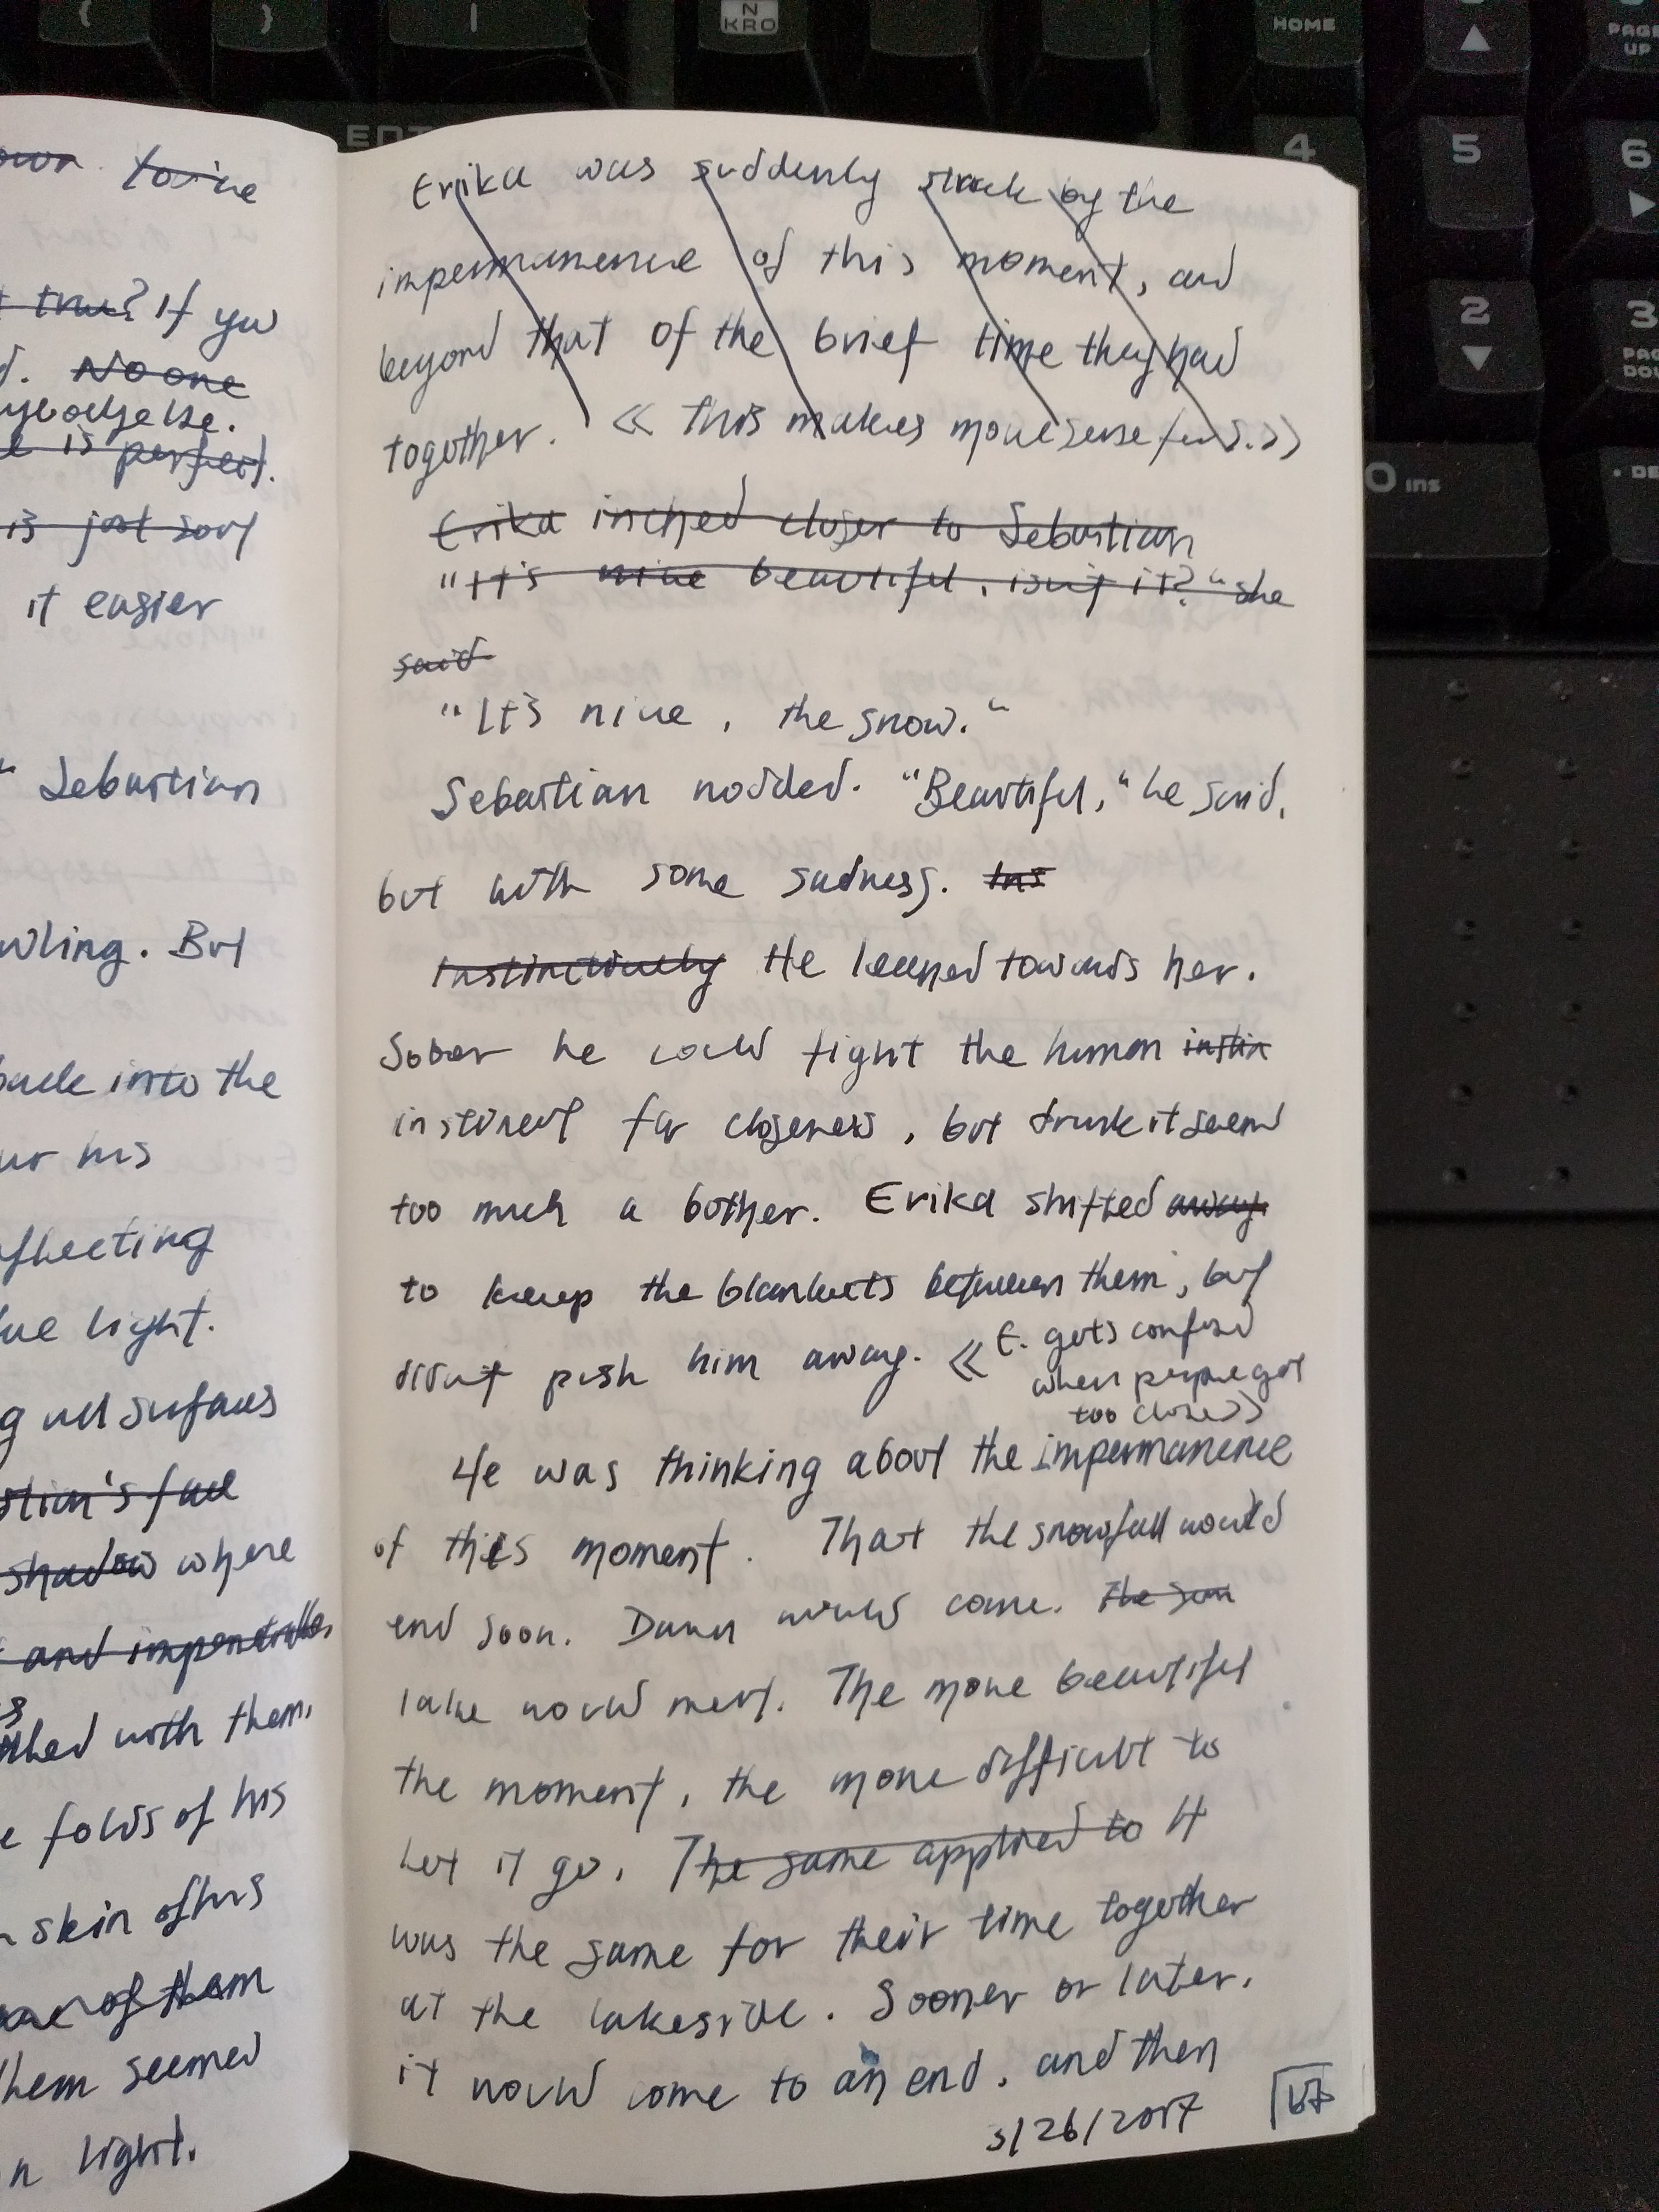 {
}
|
N
KRO
HOME
PAGE
UP
4
5
6
2
3
PAG
DOW
0 ins
. DE
ENT
own. to
t true? If you
d. No one
ybody else.
e is perfect.
is just sort
it easier
" Sebastian
wling. But
back into the
ur his
eflecting
ue light.
g all surfaces
stian's face
shadow where
t and impenetrable
shed with them,
e folds of his
n skin of his
of them
them seemed
n light.
Erika was suddenly struck by the
impermanence of this moment, and
beyond that of the brief time they had
together. << This makes more sense S.>>
Erika inched closer to Sebastian
"It's nice beautiful, isn't it?" she
said
"It's nice, the snow."
Sebastian nodded. "Beautiful," he said,
but with some sadness. Ins
Instinctively He leaned towards her.
Sober he could fight the human instin
instinct for closeness, but drunk it seemd
too much a bother. Erika shifted away.
to keep the blankets between them, but
didn't push him away. << E. gets confused
when people get
too close>>
He was thinking about the impermanence
of this moment. That the snowfall would
end soon. Dawn would come. The sun
lake would melt. The more beautiful
the moment, the more difficult to
let it go. The same applied to It
was the same for their time together
at the lakeside. Sooner or later,
it would come to an end, and then
3/26/2017
67